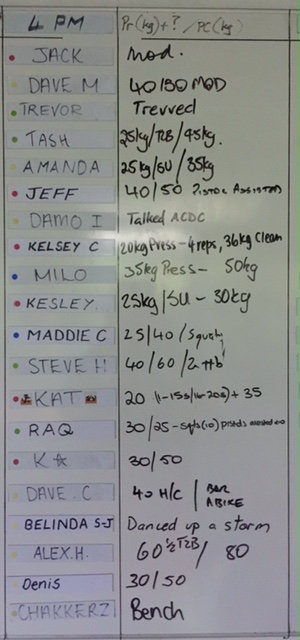 4 PM Pr(kg)+?/PC(kg)
JACK Mod.
DAVE M 40/50 MOD
TREVOR Trevved
TASH 25kg/T2B/45kg.
AMANDA 25kg/SU/35kg
JEFF 40/50 Pistol Assisted
DAMO I Talked ACDC
KELSEY C 20kg Press-4reps, 36kg Clean
MILO 35kg Press- 50kg
KESLEY 25kg/SU-30kg
MADDIE C 25/40/Squats
STEVE H 40/60/2
KAT 20 + 35
RAQ 30/25-
K☆ 30/50
DAVE C 40 H/C / BAR ABIKE
BELINDA S-J Danced up a storm
ALEX.H. 60 ½ T2B / 80
Denis 30/50
CHAKKERZ Bench